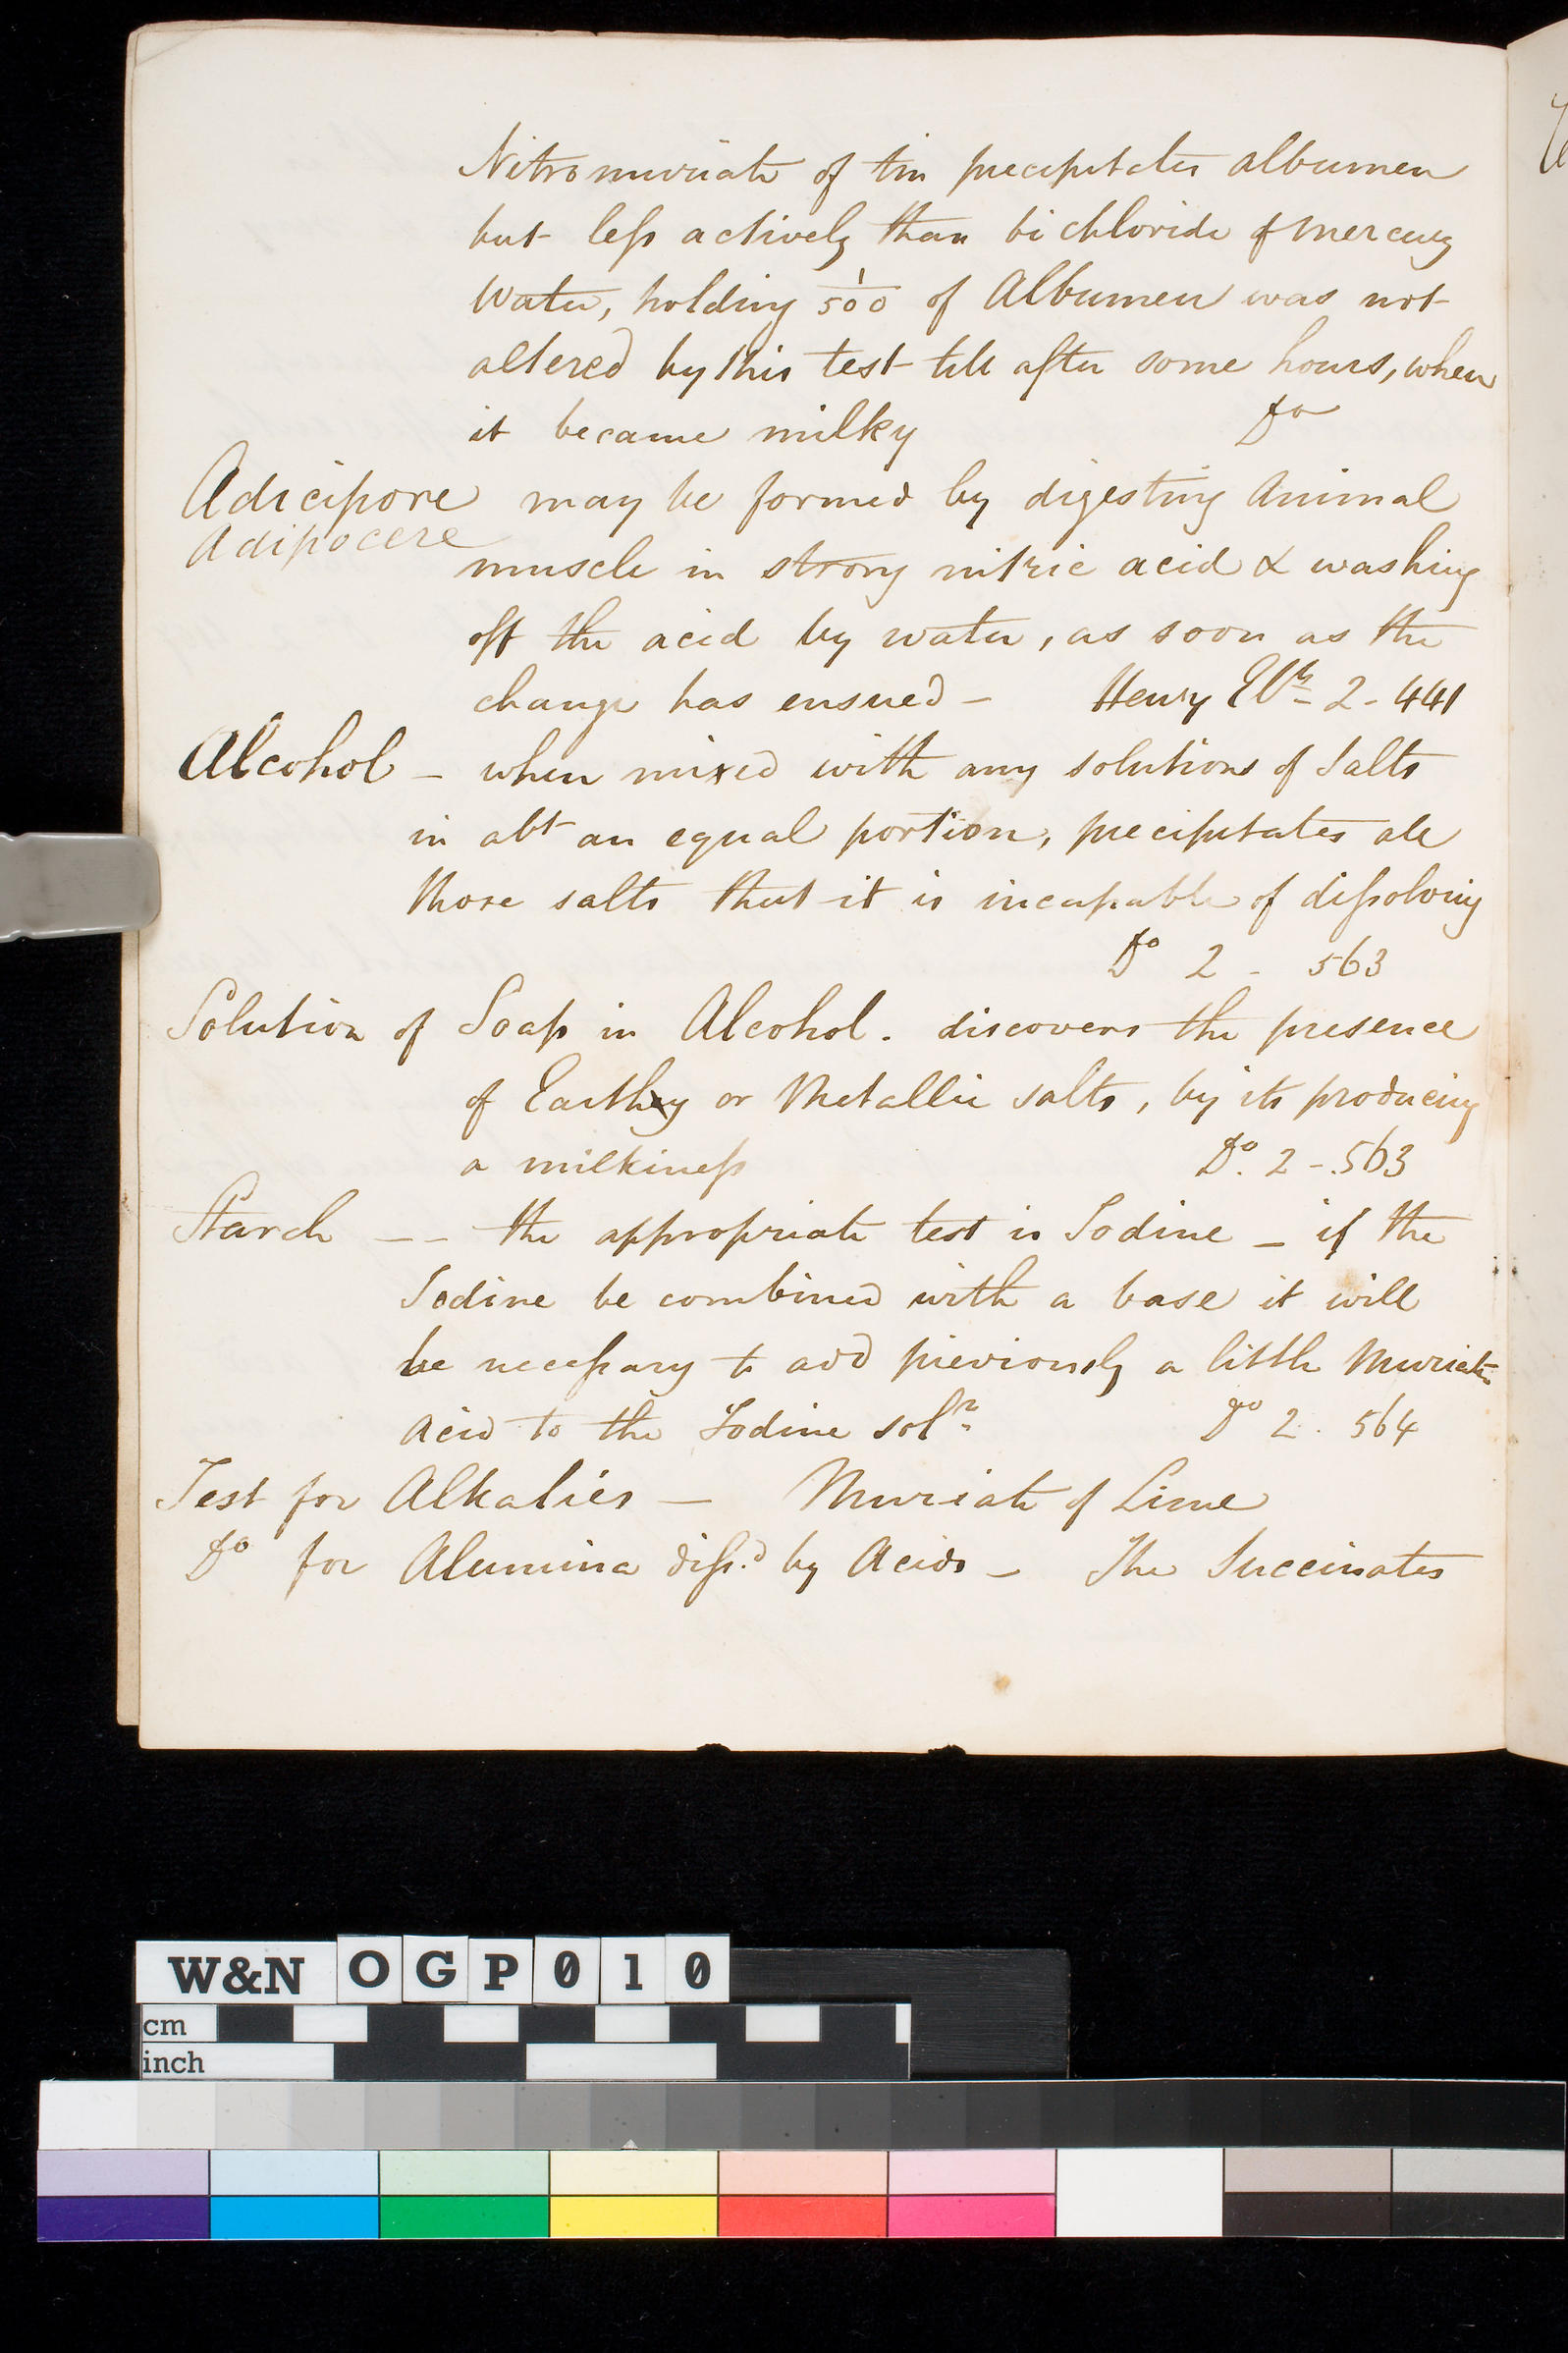 Nitromuriate of tin precipitates albumen
but leſs actively than bichloride of mercury
Water, holding 1/500 of Albumen was not
altered by this test till after some hours, when
it became milky Do
Adicipore may be formed by digesting Animal
Adipocere
muscle in strong nitric acid & washing
off the acid by water, as soon as the
change has ensued - Henry 2 - 441
Alcohol - when mixed with any solutions of Salts
in abt an equal portion, precipitates all
those salts that it is incapable of diſsolving
Do 2 - 563
Solution of Soap in Alcohol. discovers the presence
of Earthy or Metallic salts, by its producing
a milkineſs Do. 2 - 563
Starch -- the appropriate test is Iodine - if the
Iodine be combined with a base it will
be neceſsary to add previously a little Muriatic
Acid to the Iodine soln Do 2. 564
Test for Alkalies - Muriate of Lime
Do for Alumina diſs.d by Acids - The Succinates
W&N OGP010
cm
inch